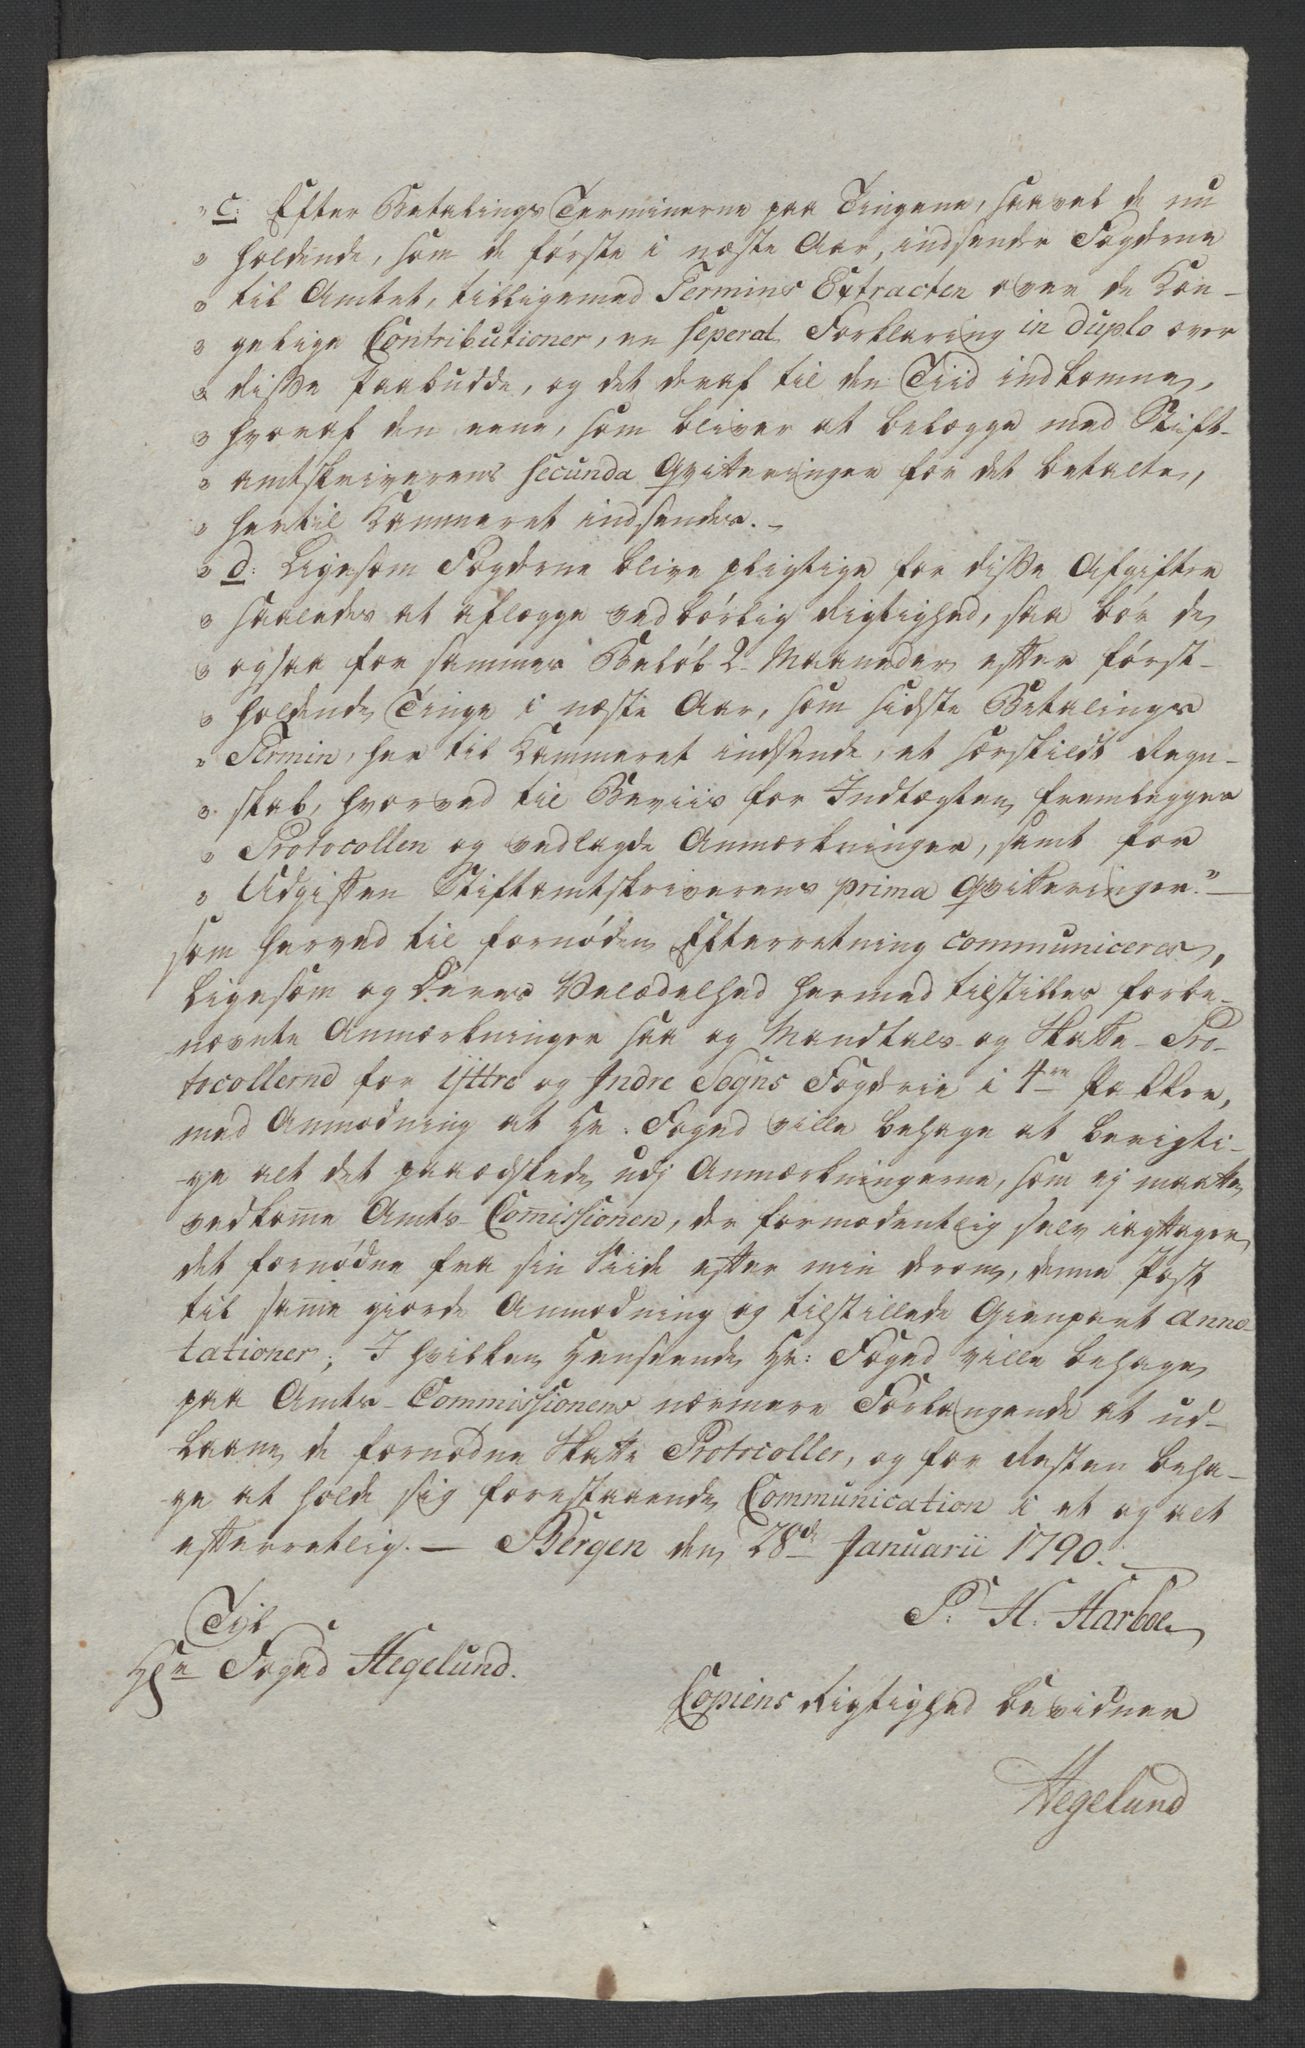 " c: Efter Betalings Terminerne paa Tingene, saavel de nu
" holdende, som de første i næste Aar, indsende Fogderne
" til Amtet, tilligemed Termins Extracten over de Kon-
" gelige Contributioner, en seperat Forklaring in duplo over
" disse Paabudde, og det deraf til den Tiid indkomne,
" hvoraf den eene, som bliver at belægge med Stift-
" amtskriverens secunda Qvitteringer for det betalte,
" hertil Kammeret indsendes. –
" d: Ligesom Fogderne blive pligtige for disse Afgifter
" saaledes at aflægge vedbørlig Rigtighed, saa bør de
" ogsaa for sammes Beløb 2 Maaneder efter først-
" holdende Tinge i næste Aar, som sidste Betalings
" Termin, her til Kammeret indsende, et særskildt Regn-
" skab, hvorved til Beviis for Indtægten fremlegges
" Protocollen og vedlagde Anmærkninger, samt for
" Udgiften Stiftamtskriverens prima Qvitteringer." –
som herved til fornøden Efterretning communiceres,
ligesom og Deres Velædelhed hermed tilstilles forbe-
nævnte Anmærkninger saa og Mandtals- og Skatte-Pro-
tocollerne for Yttre og Indre Sogns Fogderie i 4re Pakker,
med Anmodning at Hr. Foged ville behage at berigti-
ge alt det paaædskede udj Anmærkningerne, som ej maatte
vedkomme Amts-Comissionen, der formodentlig selv iagttager
det fornødne fra sin Siide efter min derom, denne Post
til samme giorde Anmodning og tilstillede Gienpart anno-
tationer; I hvilken Henseende Hr: Foged ville behage
paa Amts-Commissionens nærmere Forlangende at ud-
laane de fornødne Skatte Protocoller, og for Resten beha-
ge at holde sig forestaaende Communication i et og alt
efterretlig. – Bergen den 28de Januarii 1790.
P. H. Harboe
Til
Hr Foged Hegelund.
Copiens Rigtighed bevidner
Hegelund